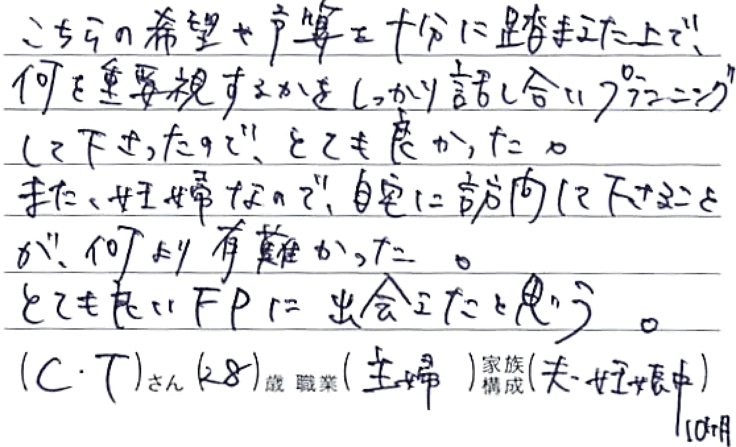 こちらの希望や予算を十分に踏まえた上で、
何を重要視するかをしっかり話し合いプランニング
して下さったので、とても良かった。
また、妊婦なので、自宅に訪問して下さること
が、何より有難かった。
とても良いFPに出会えたと思う。
(C・T)さん(28)歳 職業(主婦)家族構成(夫・妊娠中)
10ヶ月